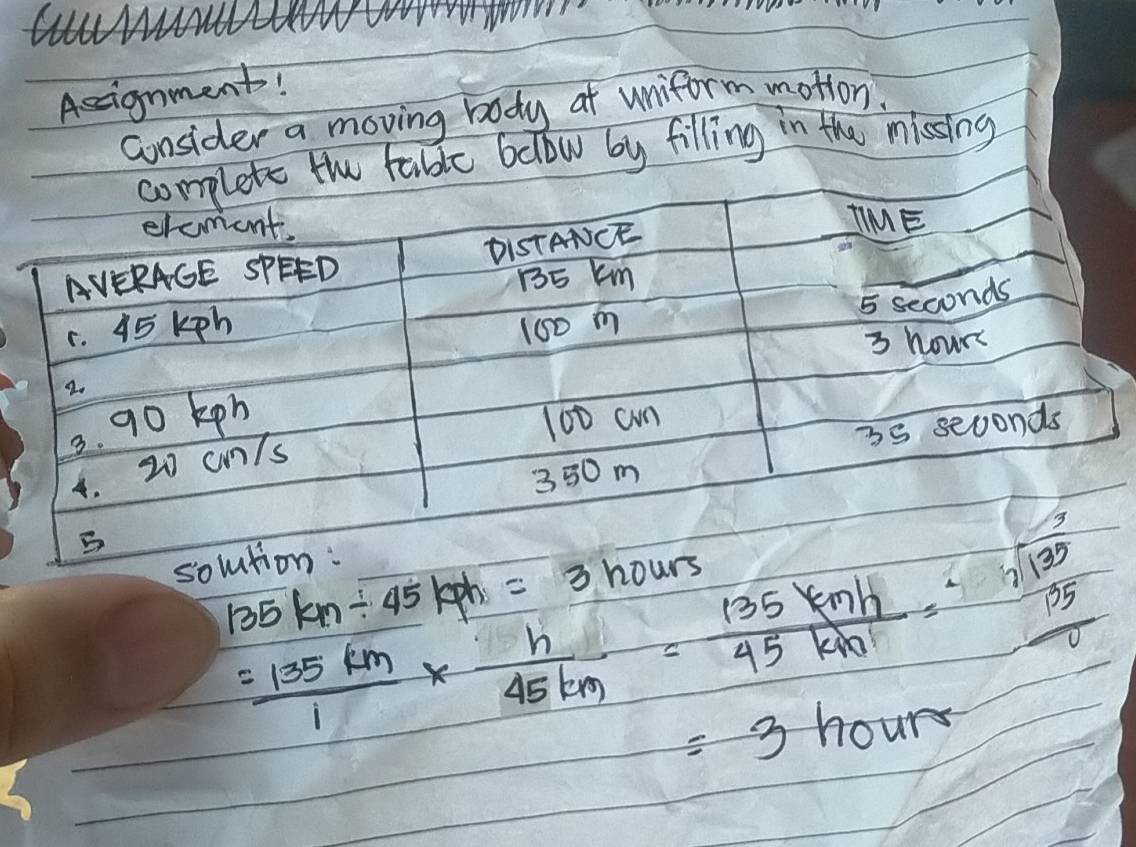 Assignment!
Consider a moving body at uniform motion.
complete the table below by filling in the missing
element.
AVERAGE SPEED DISTANCE TIME
1. 45 kph 135 km
2. 100 m 5 seconds
3. 90 kph 3 hours
4. 20 cm/s 100 cm
5 350 m 35 seconds
solution:
135 km ÷ 45 kph = 3 hours
= 135 km / 1 × h / 45 km = 135 kmh / 45 km =
3
135
135
0
= 3 hours